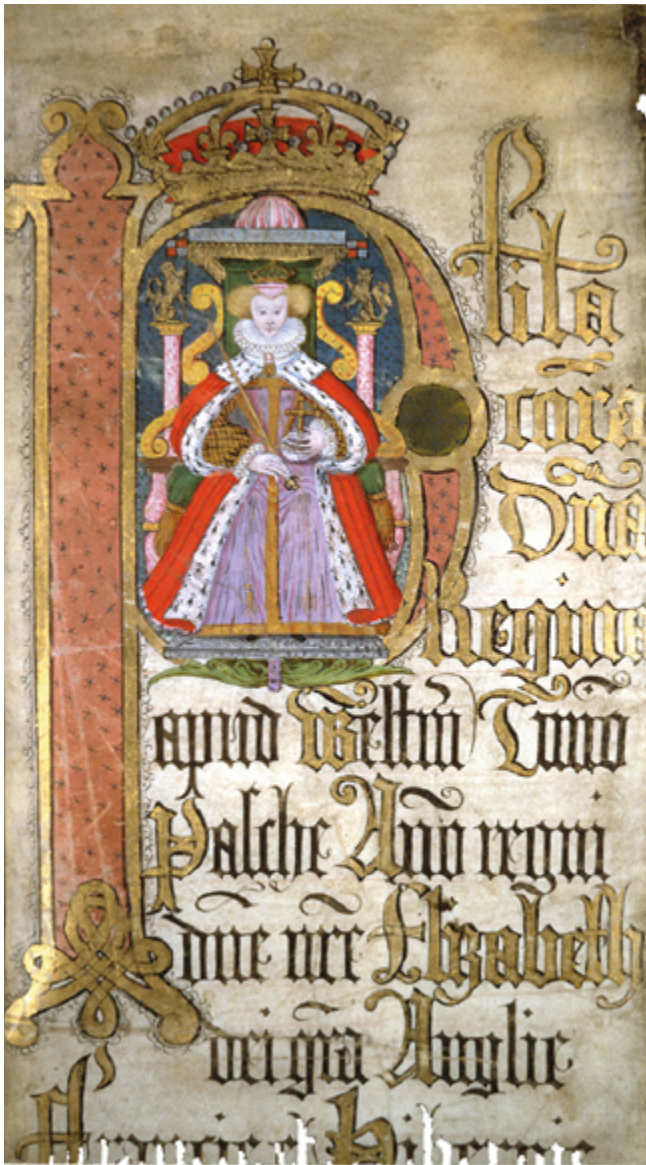 Plita
cora͂
Dña
Regina
apud Westm͂ T͂mino
Pasche An͂o regni
dn͂e nr͂e Elizabeth
dei gr͂a Anglie
Francie et Hibernie